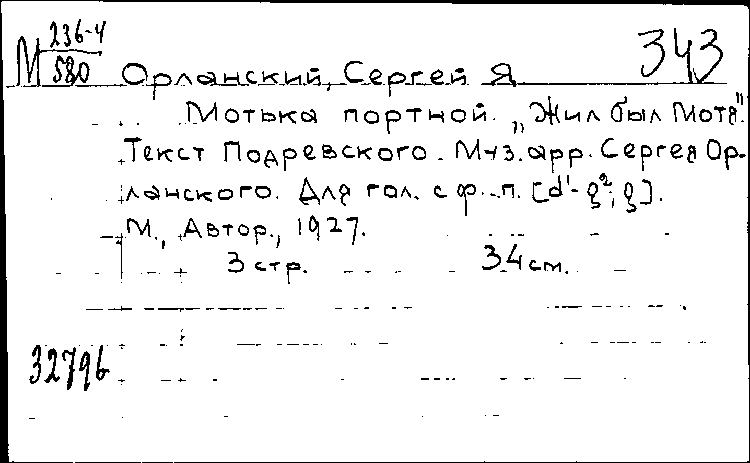 М 236-4
580
343
Орланский, Сергей Я
Мотька портной. „Жил был Мотя".
Текст Подревского. Муз. арр. Сергея Ор-
ланского. Для гол. с ф.-п. [d¹-g²; g].
М., Автор., 1927.
3 стр. 34 см.
32796